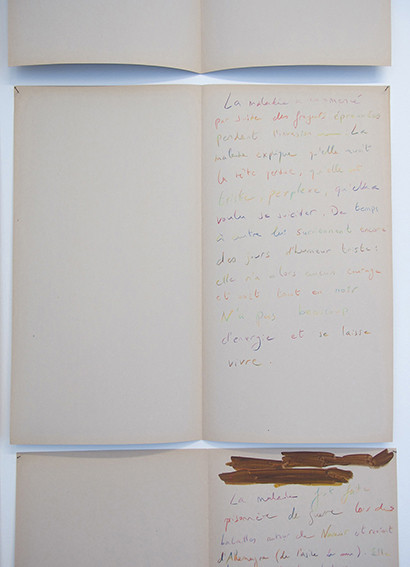 La maladie a commencé
par suite des frayeurs éprouvées
pendant
La
malade explique qu'elle avait
la tête perdue, qu'elle
très perplexe, qu'elle a
voulu se suicider. De temps
à autre lui surviennent encore
des jours d'humeur triste :
elle n'a alors aucun courage
et voit tout en noir
N'a plus beaucoup
d'énergie et se laisse
vivre.
La malade fut faite
prisonnière de guerre lors des
batailles autour de Namur et revint
d'Allemagne (de